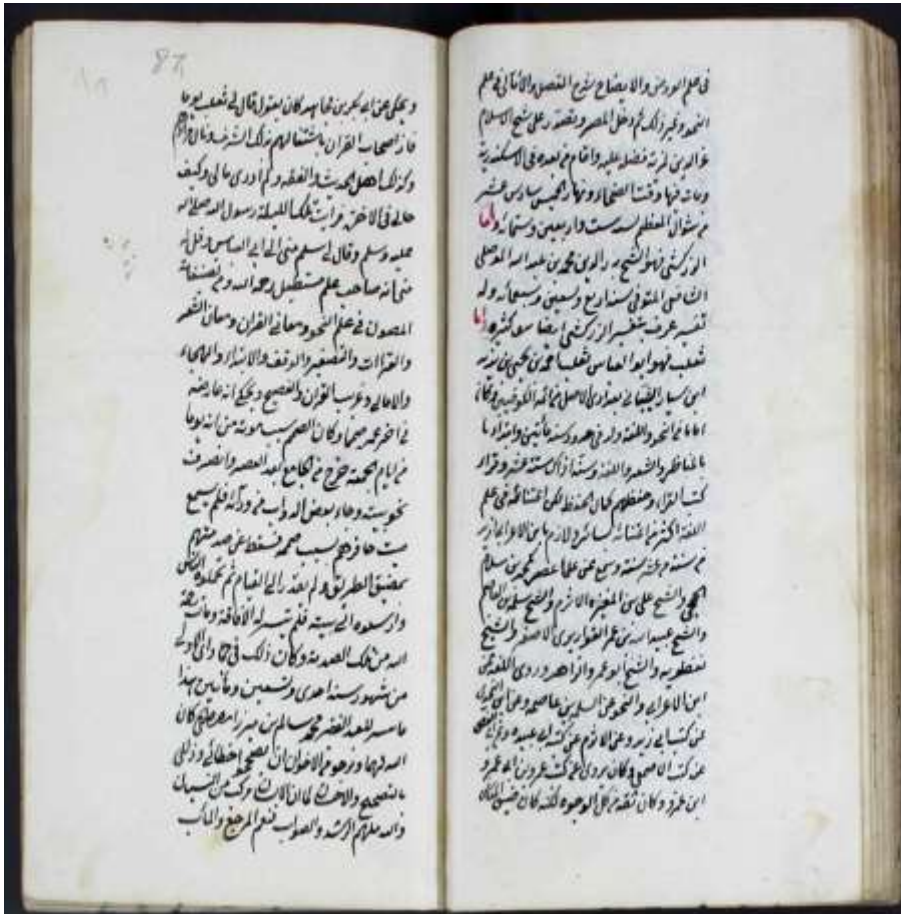 في علم العروض والايضاح شرح المفصل والأمالي في علم
النحو وغير ذلك ثم دخل المصر وتصدر على شيخ الاسلام
عز الدين فضل عليه واقام في الاسكندرية
ومات فيها وقت الضحى نهار الخميس سادس عشر
من شوال المعظم لسنة ست واربعين وستمائة واما
الزركشي فهو الشيخ بدر الدين محمد بن عبد الله الموصلي
الشافعي المتوفى سنة اربع وتسعين وسبعمائة وله
تفسير عرف بتفسير الزركشي ايضا كثيرة اما
ثعلب فهو ابو العباس ثعلب احمد بن يحيى بن زيد
ابن سيار الشيباني بغدادي الاصل من ائمة الكوفيين وكان
اماما في النحو واللغة ولد في حدود سنة مأتين وابتدا
والشعر واللغة وسنه اذ ذاك ستة عشر
كتب الفراء وحفظها كان في علم
اللغة اكثر من لازم ابن الاعرابي
سنة وسمع عن علماء عصره كمحمد بن سلام
الجمحي والشيخ علي بن المغيرة الاثرم والشيخ سلمة بن عاصم
والشيخ عبيد الله بن عمر القواريري الاصغر والشيخ
نفطويه والشيخ ابو عمر والزاهد وروى اللغة عن
ابن الاعرابي والنحو عن سلمة بن عاصم وعن
عن كتب ابي زيد وعن الاثرم عن كتب ابي عبيدة وعن
عن كتب الاصمعي وكان يروي عن كتب عمرو بن ابي عمرو
ابن عمرو وكان ثقة من كل الوجوه لكنه كان ضيق
٢٨
ويحكى عن ابي بكر بن مجاهد كان يقول قال لي ثعلب يوما
فاز اصحاب القران باشتغالهم ذلك الشرف
وكذلك اهل الحديث والفقه ولم ادرى مالي وكيف
حالي في الاخرة فرأيت تلك الليلة رسول الله صلى الله
عليه وسلم وقال لي اسلم مني الى ابي العباس وقل له
مني انه صاحب علم مستطيل رحمه الله ومن تصنيفاته
المصون في علم النحو ومعاني القران ومعاني الشعر
والقراات والتصغير والوقف والابتداء والهجاء
والامالي وغريب القران والفصيح ويحكى انه عارضه
في اخر عمره صمم وكان الصمم سبب موته من انه يوما
من ايام الجمعة خرج من الجامع بعد العصر وانصرف
نحو بيته وجاء بعض الدواب من ورائه فلم يسمع
صيت حافرهم بسبب صممه فسقط عن صدمتهم
بمضيق الطريق ولم يقدر الى القيام ثم حملوه الناس
وارسلوه الى بيته فلم تيسر له الافاقة ومات رحمة
الله من تلك الصدمة وكان ذلك في جمادى الاولى
من شهور سنة احدى وتسعين ومأتين هذا
ما يسر للعبد الفقير محمد سالم بن كان
الله لهما ونرجو من الاخوان ان يصحح اخطائي وزللي
بالتصحيح والاحسان لما ان الانسان مركب من النسيان
والله ملهم الرشد والصواب فنعم المرجع والمآب